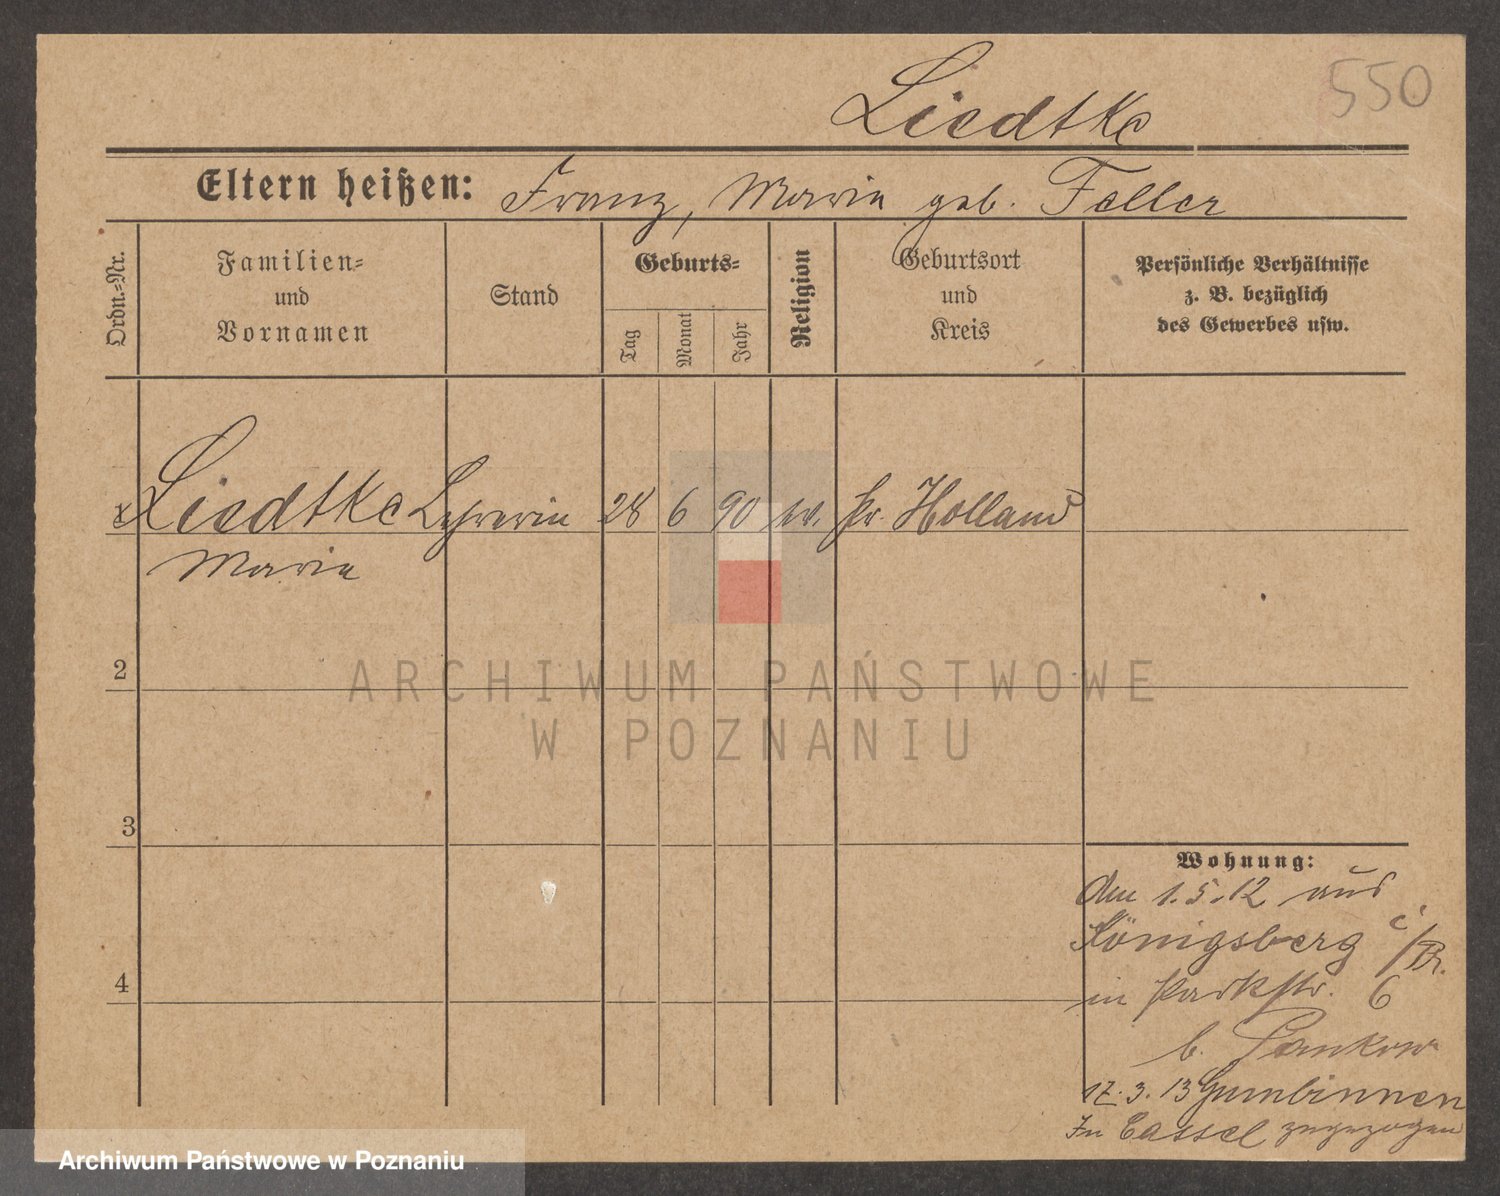 550
Liedtke
Eltern heißen: Franz, Marie geb. Feller
Ordn.-Nr.
Familien-
und
Vornamen
Stand
Geburts-
Tag
Monat
Jahr
Religion
Geburtsort
und
Kreis
Persönliche Verhältnisse
z. B. bezüglich
des Gewerbes usw.
Liedtke Lehrerin 28 6 90 ev. Pr. Holland
Marie
2
3
4
Wohnung:
Am 1.5.12 aus
Königsberg i/Pr.
in Parkstr. 6
b. Pankow
17.3.13 Gumbinnen
In Cassel zugezogen
ARCHIWUM PAŃSTWOWE
W POZNANIU
Archiwum Państwowe w Poznaniu